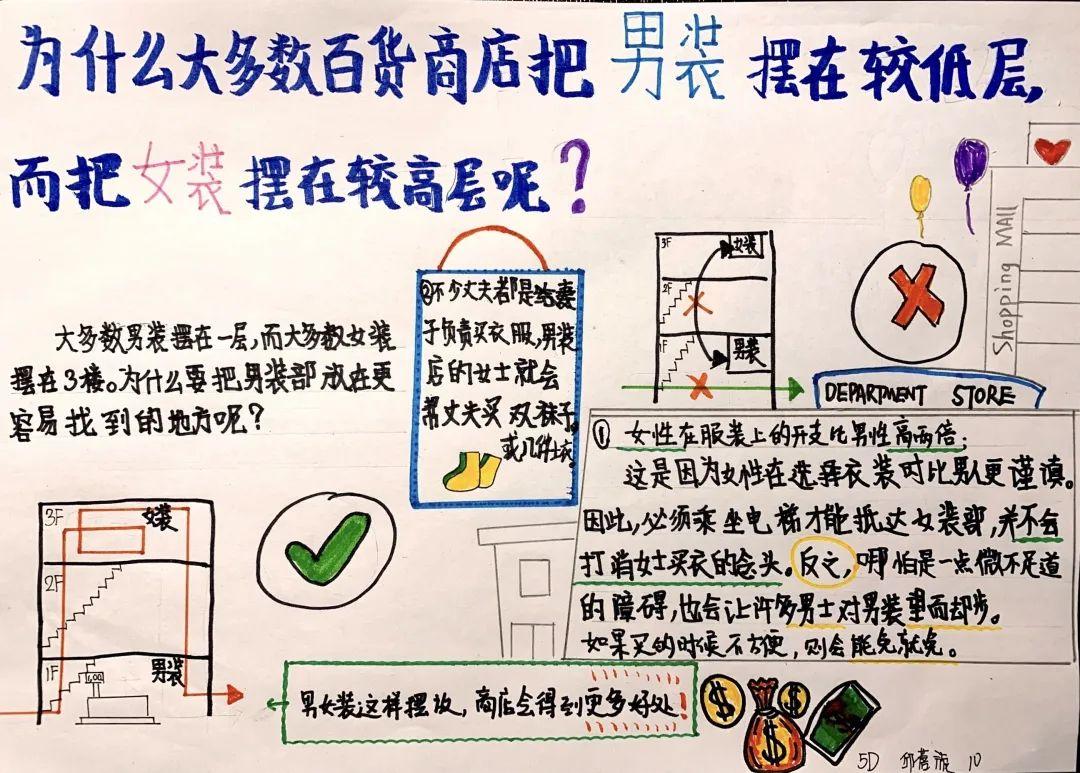 为什么大多数百货商店把男装摆在较低层,
而把女装摆在较高层呢?
大多数男装摆在一层,而大多数女装
摆在3楼。为什么要把男装部放在更
容易找到的地方呢?
②不少丈夫都是给妻
子负责买衣服,男装
店的女士就会
帮丈夫买双袜子
或几件上衣。
3F
女装
2F
1F
男装
Shopping MAll
DEPARTMENT STORE
①女性在服装上的开支比男性高两倍;
这是因为女性在选择衣装时比男人更谨慎。
因此,必须乘坐电梯才能抵达女装部,并不会
打消女士买衣的念头。反之,哪怕是一点微不足道
的障碍,也会让许多男士对男装望而却步。
如果买的时候不方便,则会能免就免。
3F
女装
2F
1F
男装
男女装这样摆放,商店会得到更多好处!
$
$
$
5D 邱 10